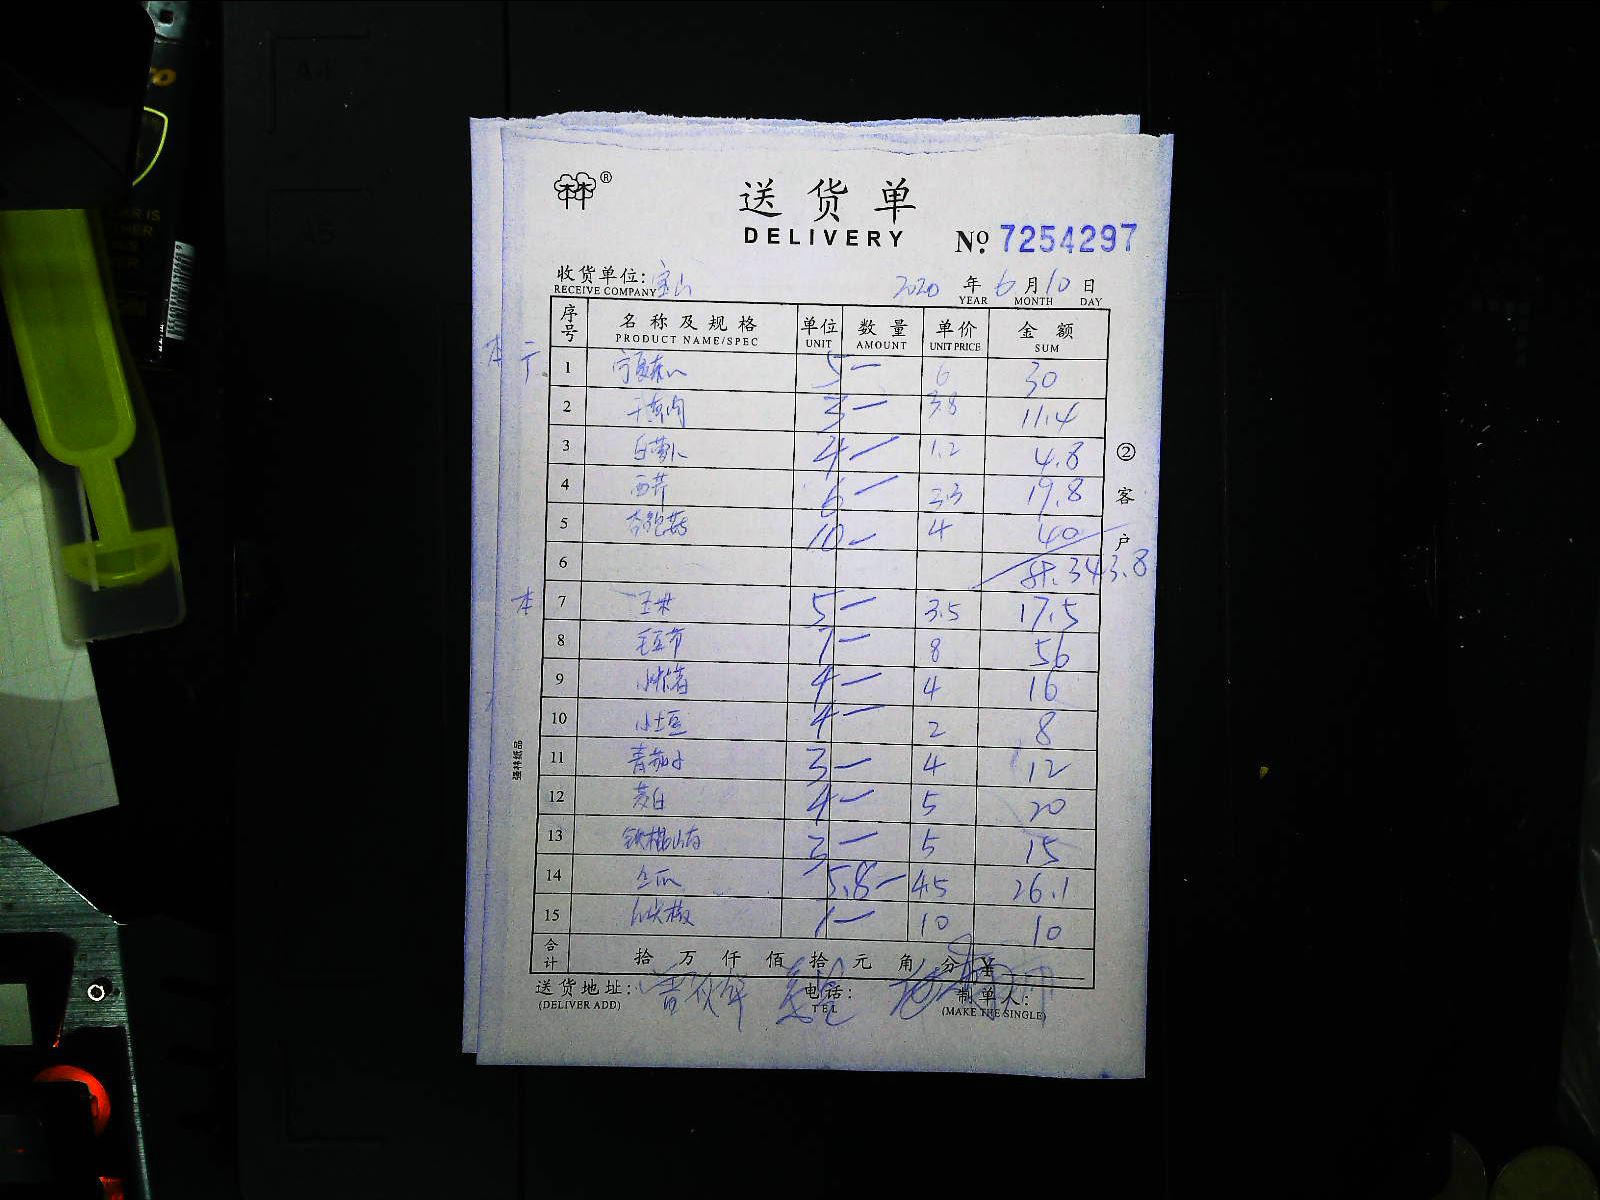 林®
送货单
DELIVERY
№ 7254297
收货单位: 宝山 2020 年 6 月 10 日
RECEIVE COMPANY YEAR MONTH DAY
序号 名称及规格 单位 数量 单价 金额
PRODUCT NAME/SPEC UNIT AMOUNT UNIT PRICE SUM
1 5 一 6 30
2 3 一 3.8 11.4
3 白萝卜 4 一 1.2 4.8
4 西芹 6 一 3.3 19.8
5 杏鲍菇 10 一 4 40
6 343.8
本 7 玉米 5 一 3.5 17.5
8 毛豆节 7 一 8 56
9 4 一 4 16
10 小土豆 4 一 2 8
11 青茄子 3 一 4 12
12 茭白 4 一 5 20
13 铁棍山药 3 一 5 15
14 5.8 一 4.5 26.1
15 1 一 10 10
合计 拾 万 仟 佰 拾 元 角 分 ¥
送货地址: 电话: 制单人:
(DELIVER ADD) TEL (MAKE THE SINGLE)
②客户
强林纸品
A4
A5